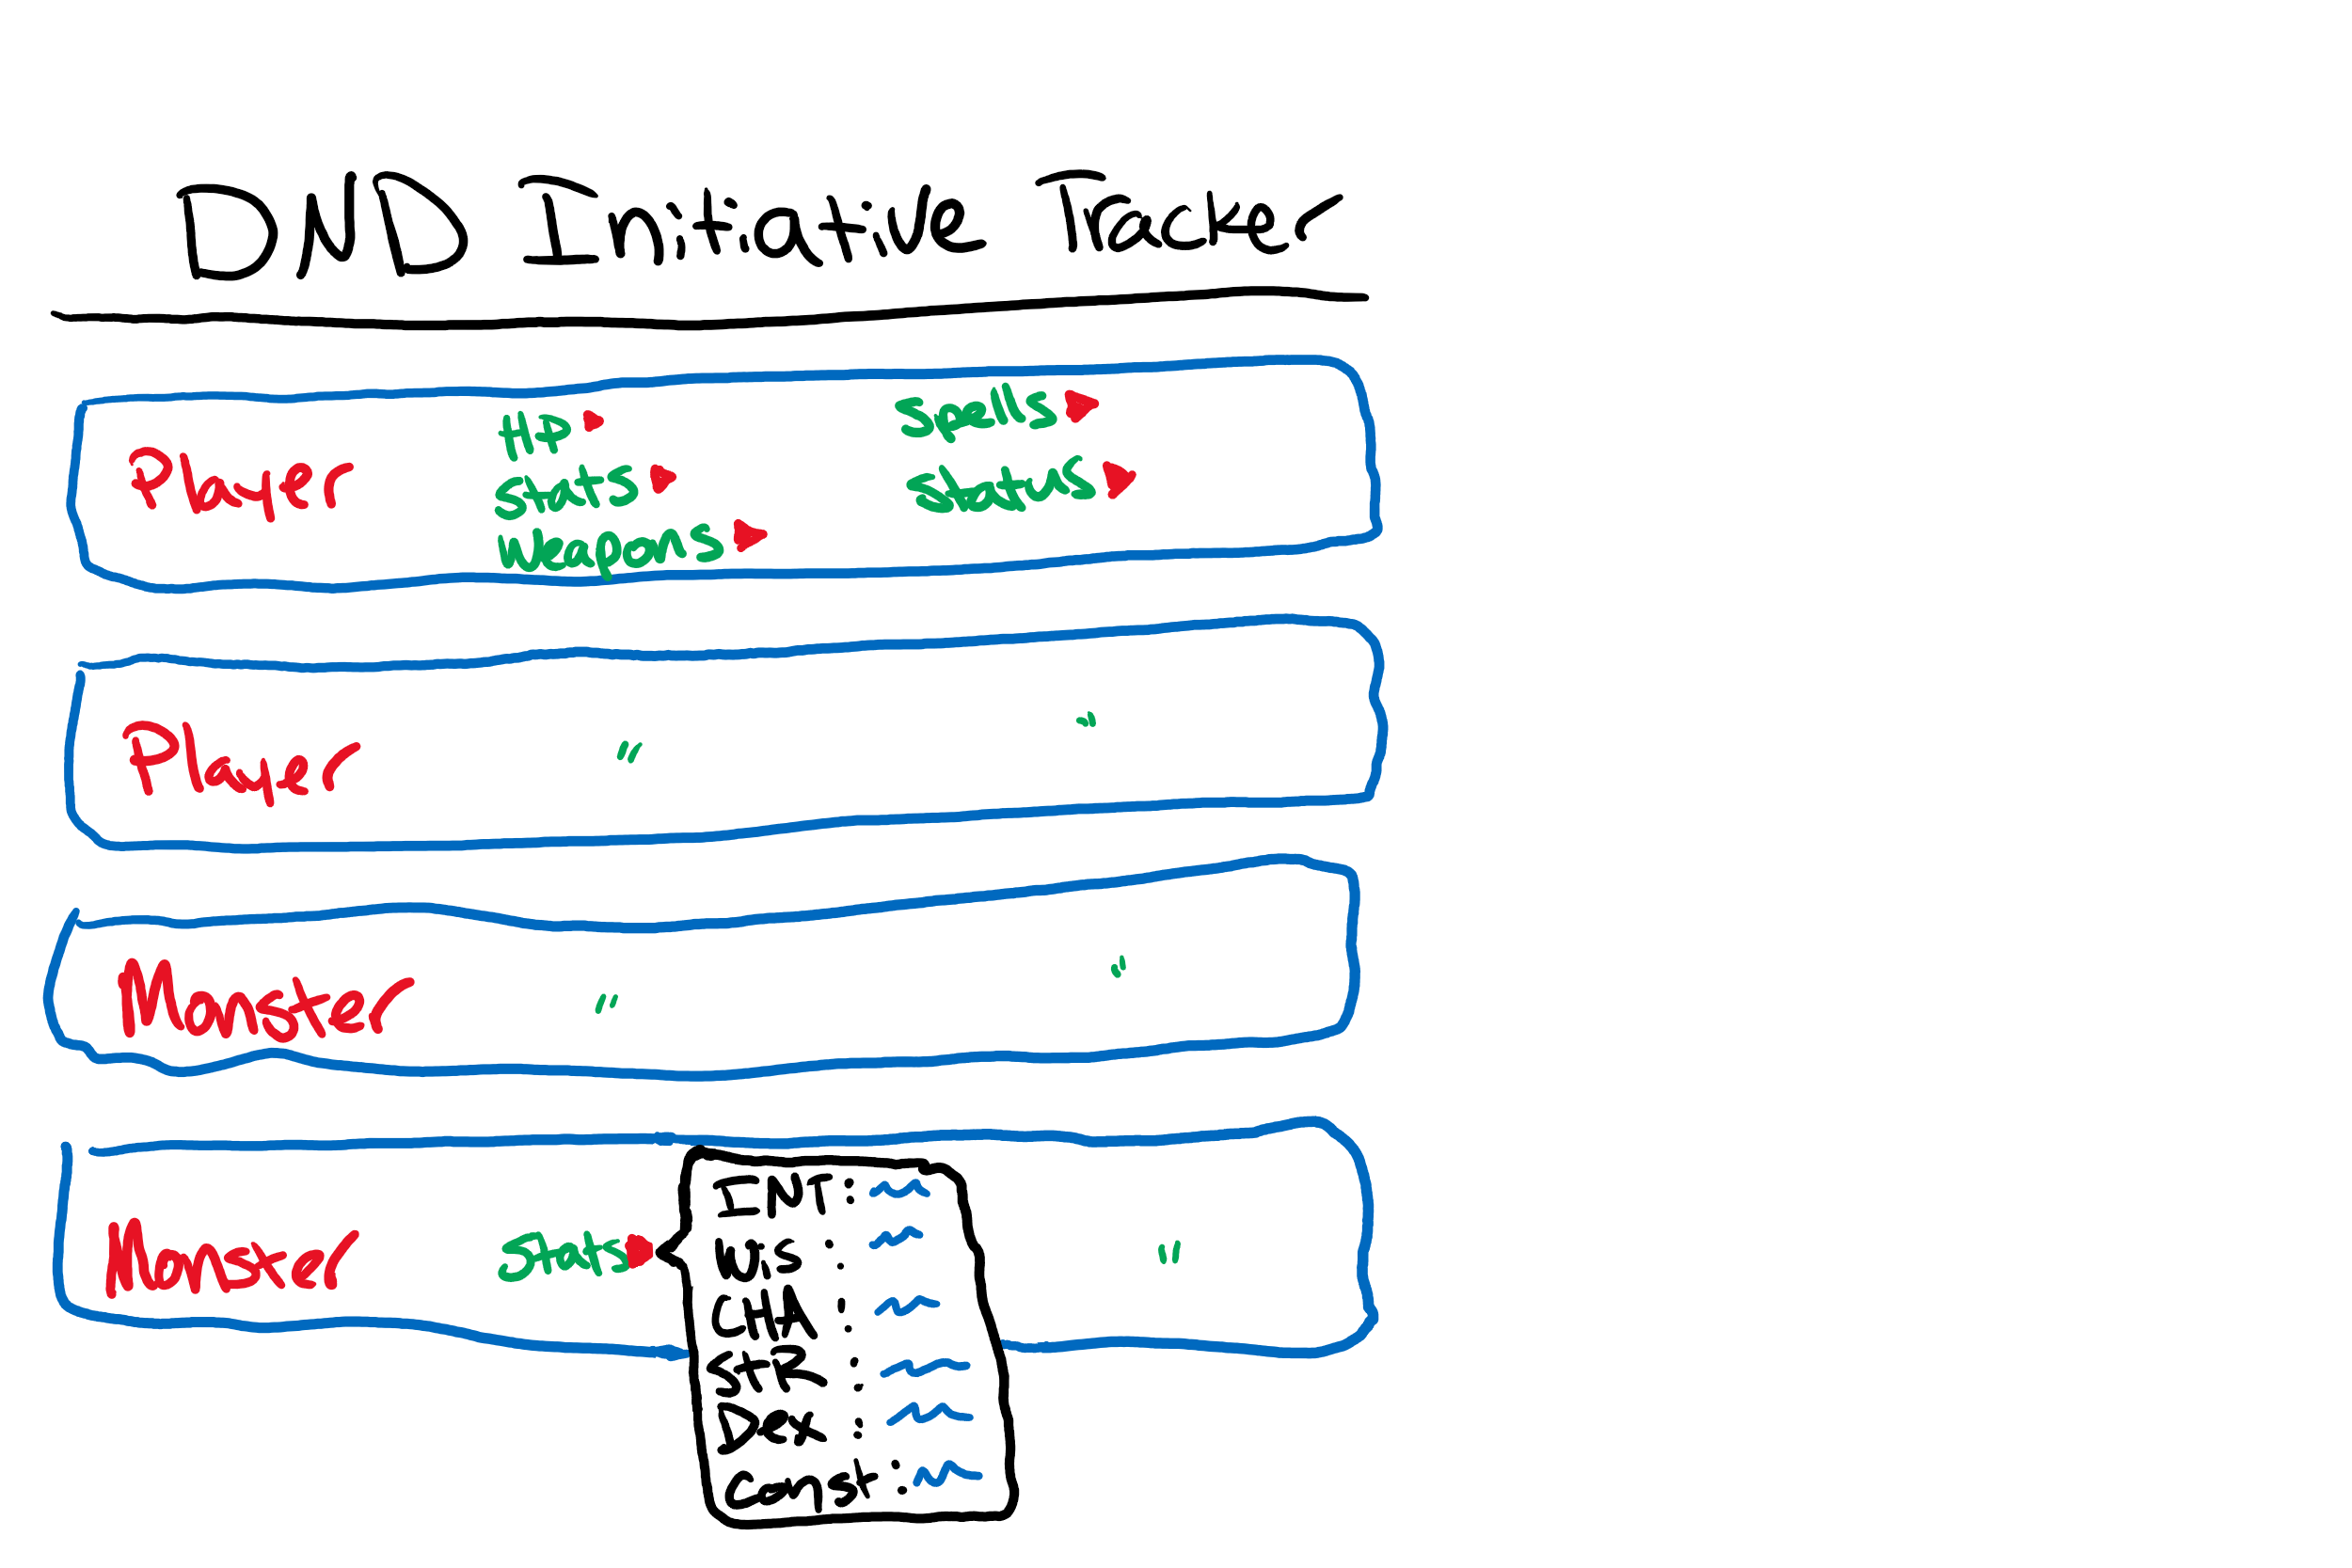 DND Initiative Tracker
Player
HP
stats
weapons
spells
status
Player
"
"
Monster
"
"
Monster
stats
"
INT:
Wis :
CHA :
StR :
Dex :
Const: